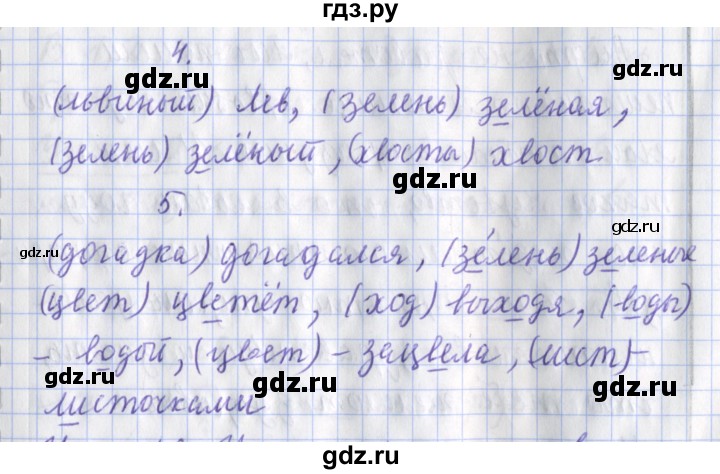 гдз.ру
4.
gdz.ru gdz.ru
(львиный) Лев, (зелень) зелёная,
(зелень) зелёный, (хвосты) хвост
gdz.ru
5.
gdz.ru gdz.ru
(догадка) догадался, (зе́лень) зеленые
(цвет) цветёт, (ход) выходя, (воды)
gdz.ru gdz.ru
- водой, (цвет) - зацвела, (лист) -
gdz.ru gdz.ru
листочками
gdz.ru